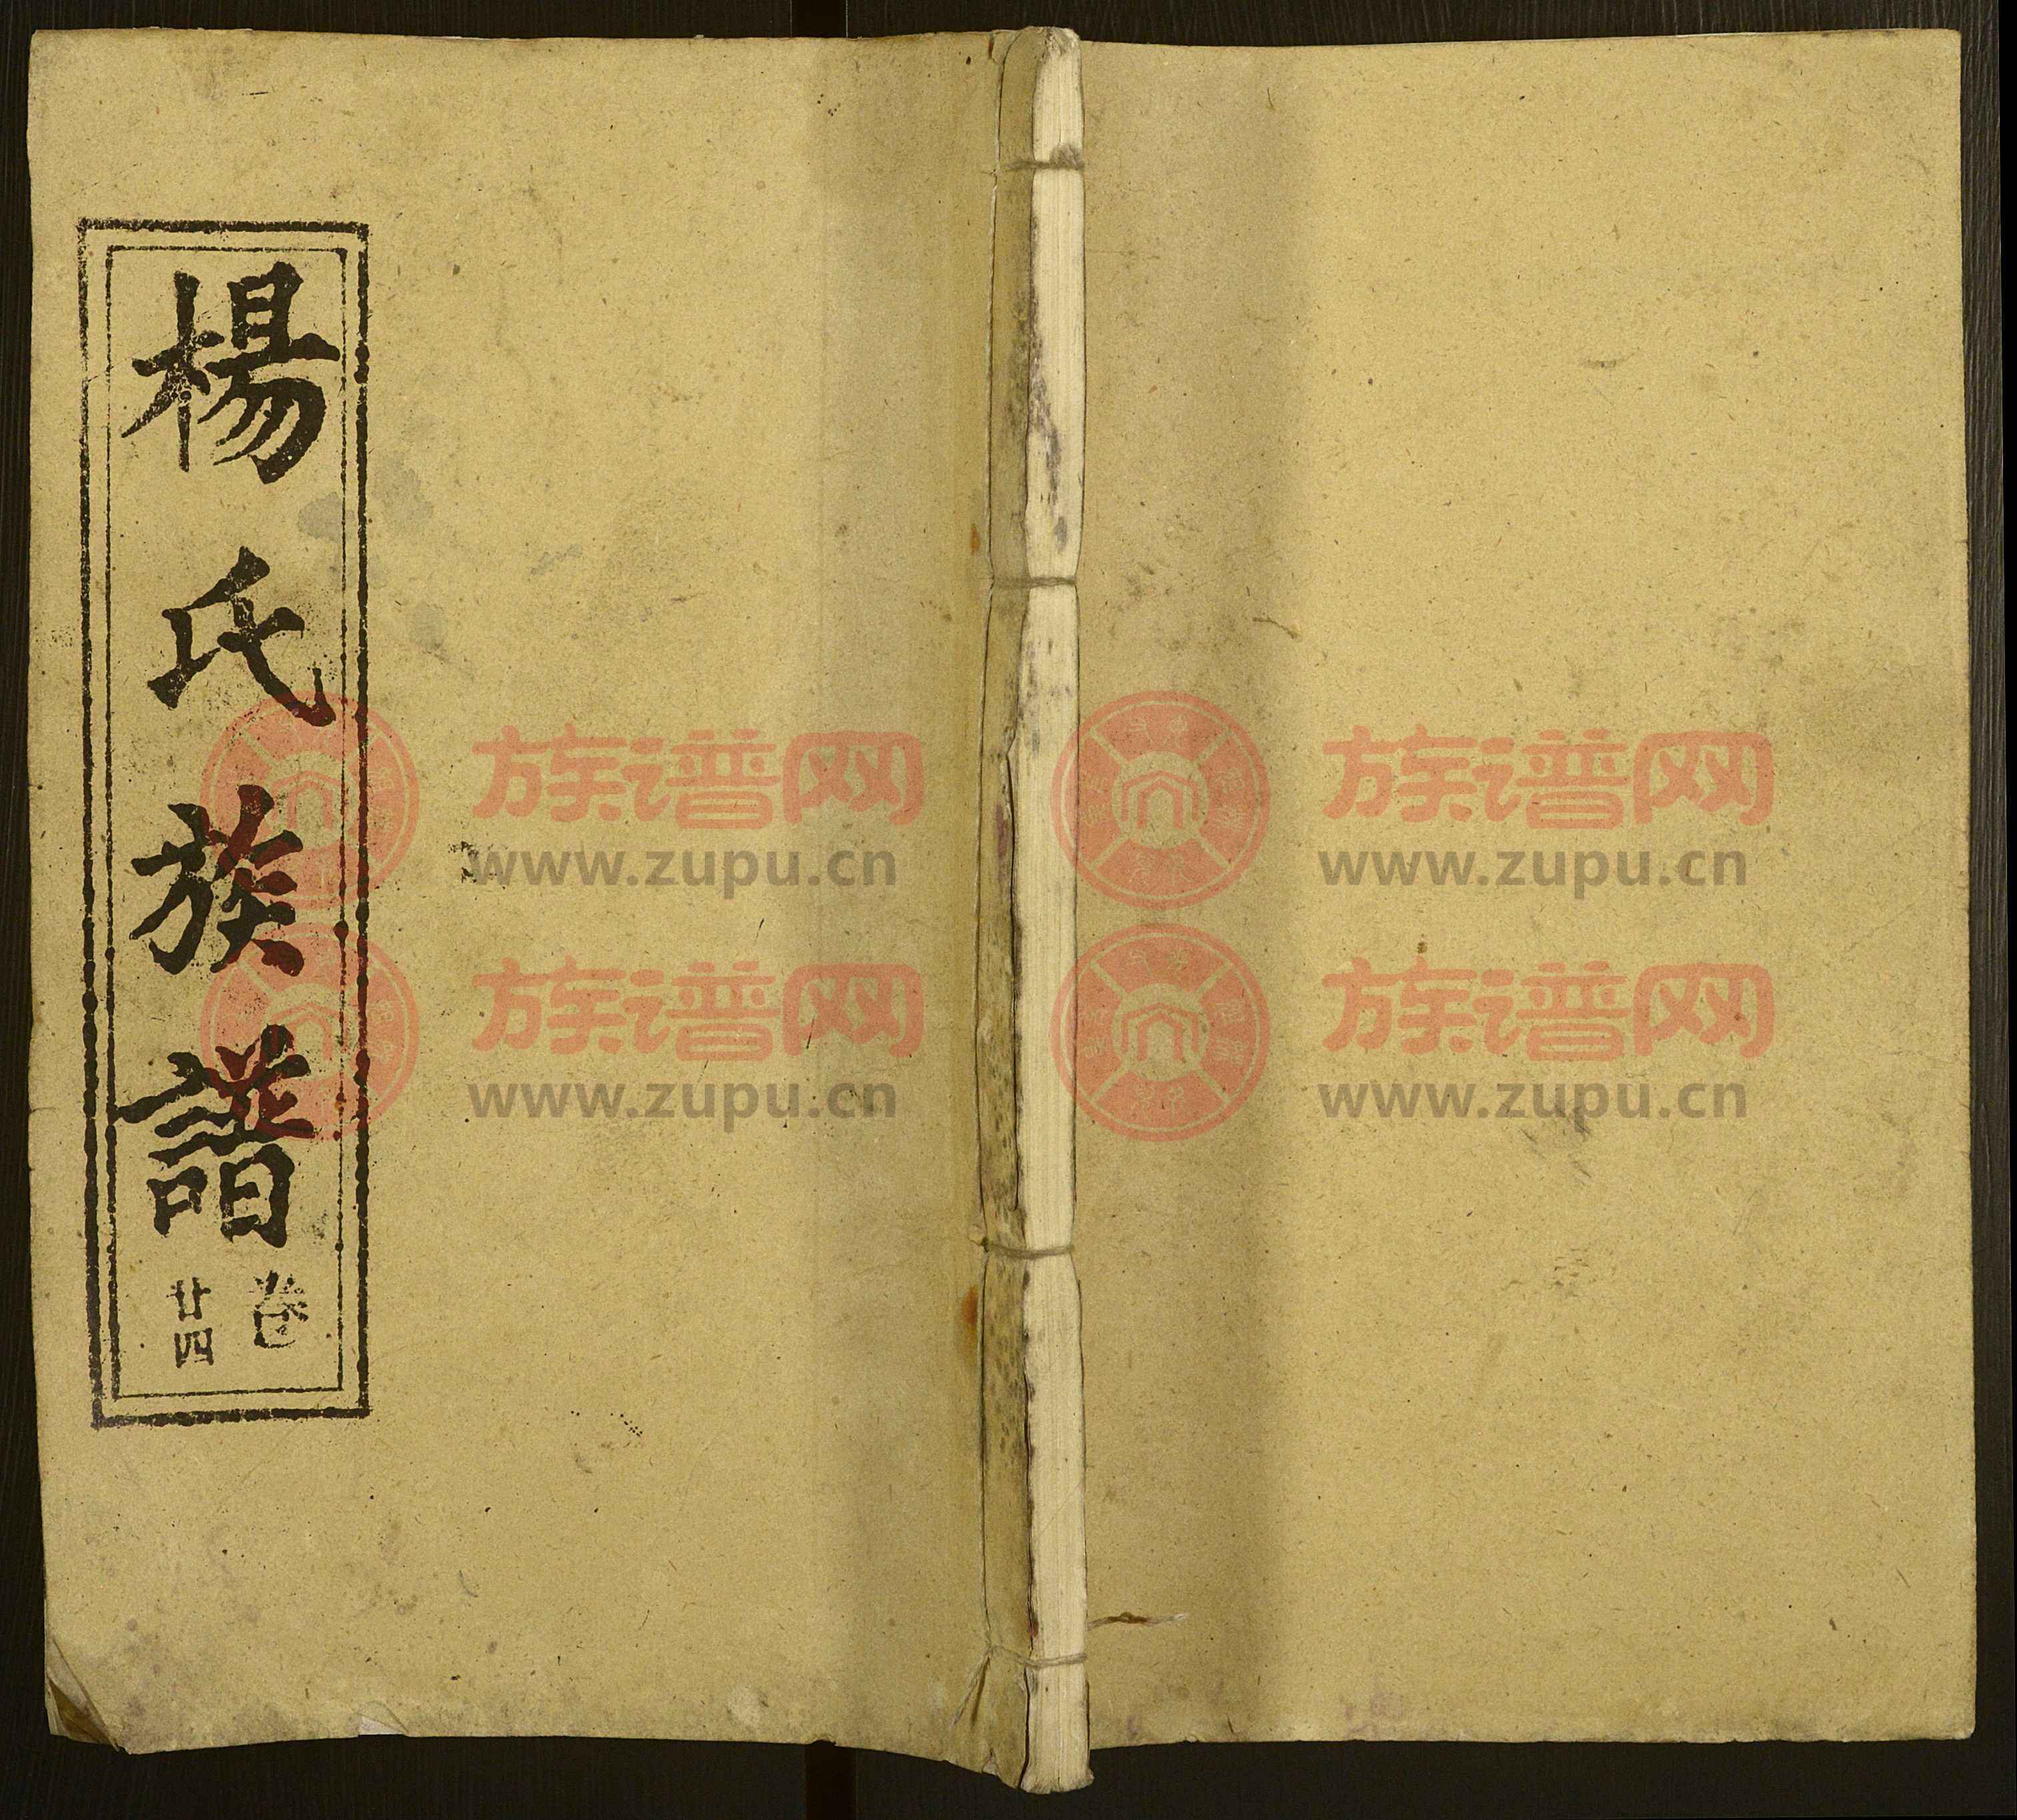 楊氏族譜
卷
廿四
族谱网
www.zupu.cn
族谱网
www.zupu.cn
族谱网
www.zupu.cn
族谱网
www.zupu.cn